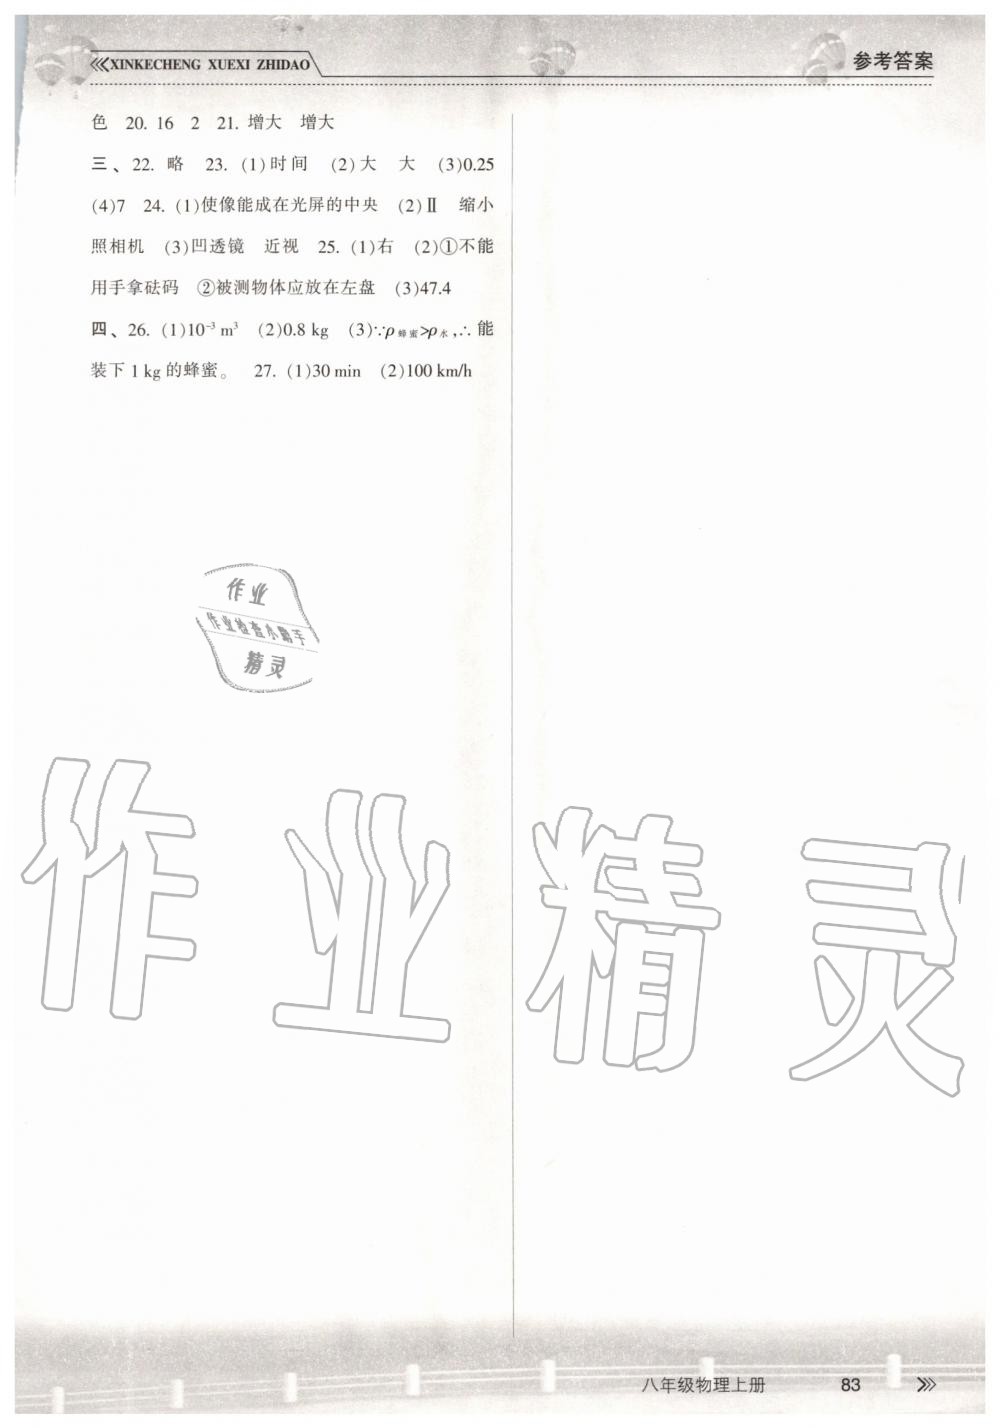 XINKECHENG XUEXI ZHIDAO
参考答案
色 20. 16 2 21. 增大 增大
三、22. 略 23. (1)时间 (2)大 大 (3)0.25
(4)7 24. (1)使像能成在光屏的中央 (2)Ⅱ 缩小
照相机 (3)凹透镜 近视 25. (1)右 (2)①不能
用手拿砝码 ②被测物体应放在左盘 (3)47.4
四、26. (1)10⁻³ m³ (2)0.8 kg (3)∵ρ蜂蜜>ρ水,∴能
装下 1 kg 的蜂蜜。 27. (1)30 min (2)100 km/h
作业
作业检查小助手
精灵
作业精灵
八年级物理上册 83